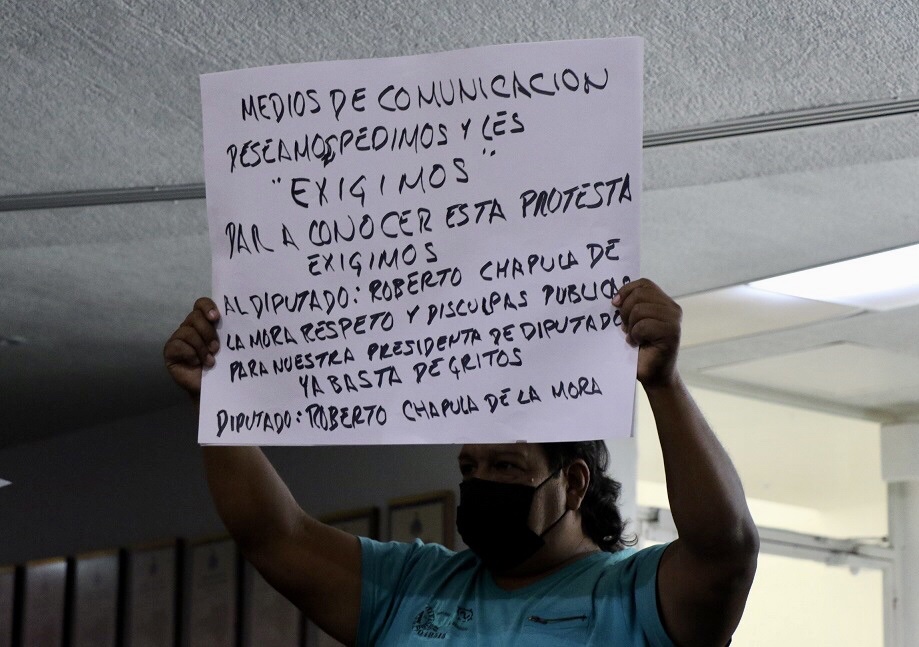 MEDIOS DE COMUNICACION
DESEAMOS, PEDIMOS Y LES
"EXIGIMOS"
DAR A CONOCER ESTA PROTESTA
EXIGIMOS
AL DIPUTADO: ROBERTO CHAPULA DE
LA MORA RESPETO Y DISCULPAS PUBLICAS
PARA NUESTRA PRESIDENTA DE DIPUTADO
YA BASTA DE GRITOS
DIPUTADO: ROBERTO CHAPULA DE LA MORA